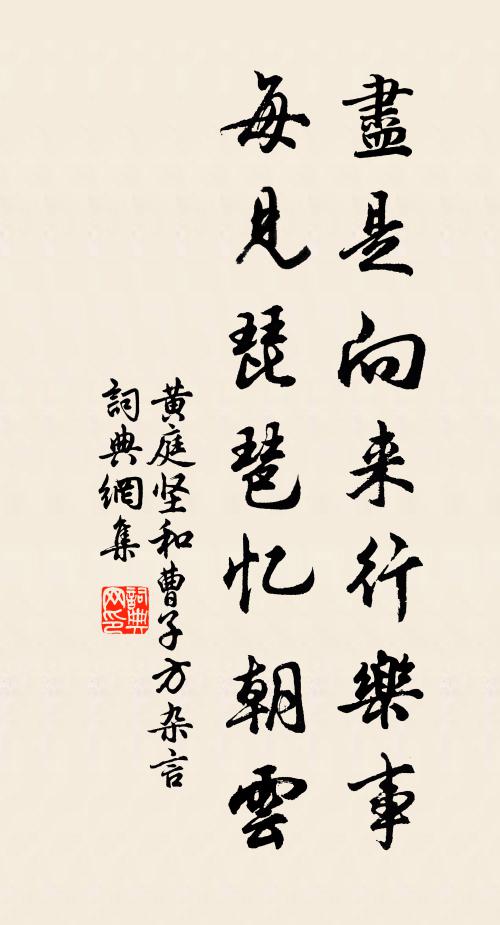 盡是向来行樂事
每見琵琶忆朝雲
黄庭坚和曹子方杂言
詞典網集
詞典
网印